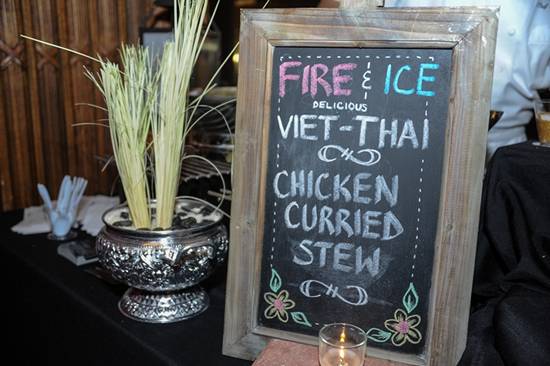 FIRE & ICE
DELICIOUS
VIET-THAI
CHICKEN
CURRIED
STEW